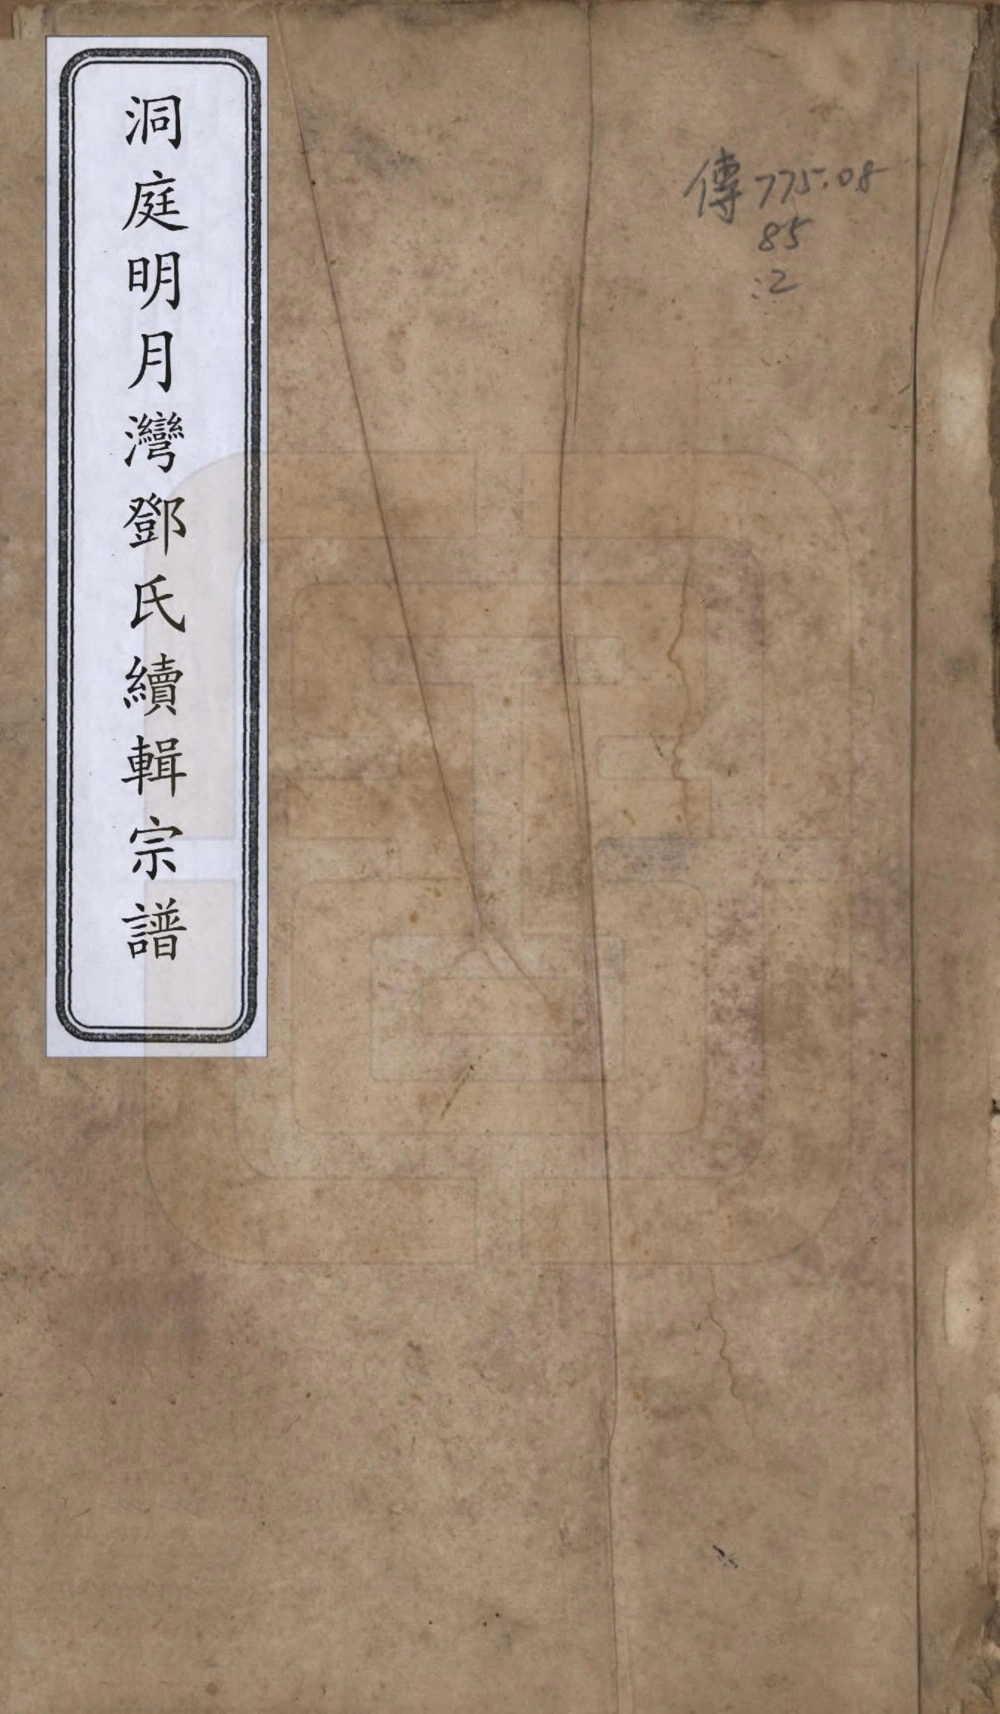 洞庭明月灣鄧氏續輯宗譜
傳775.08
85
:2